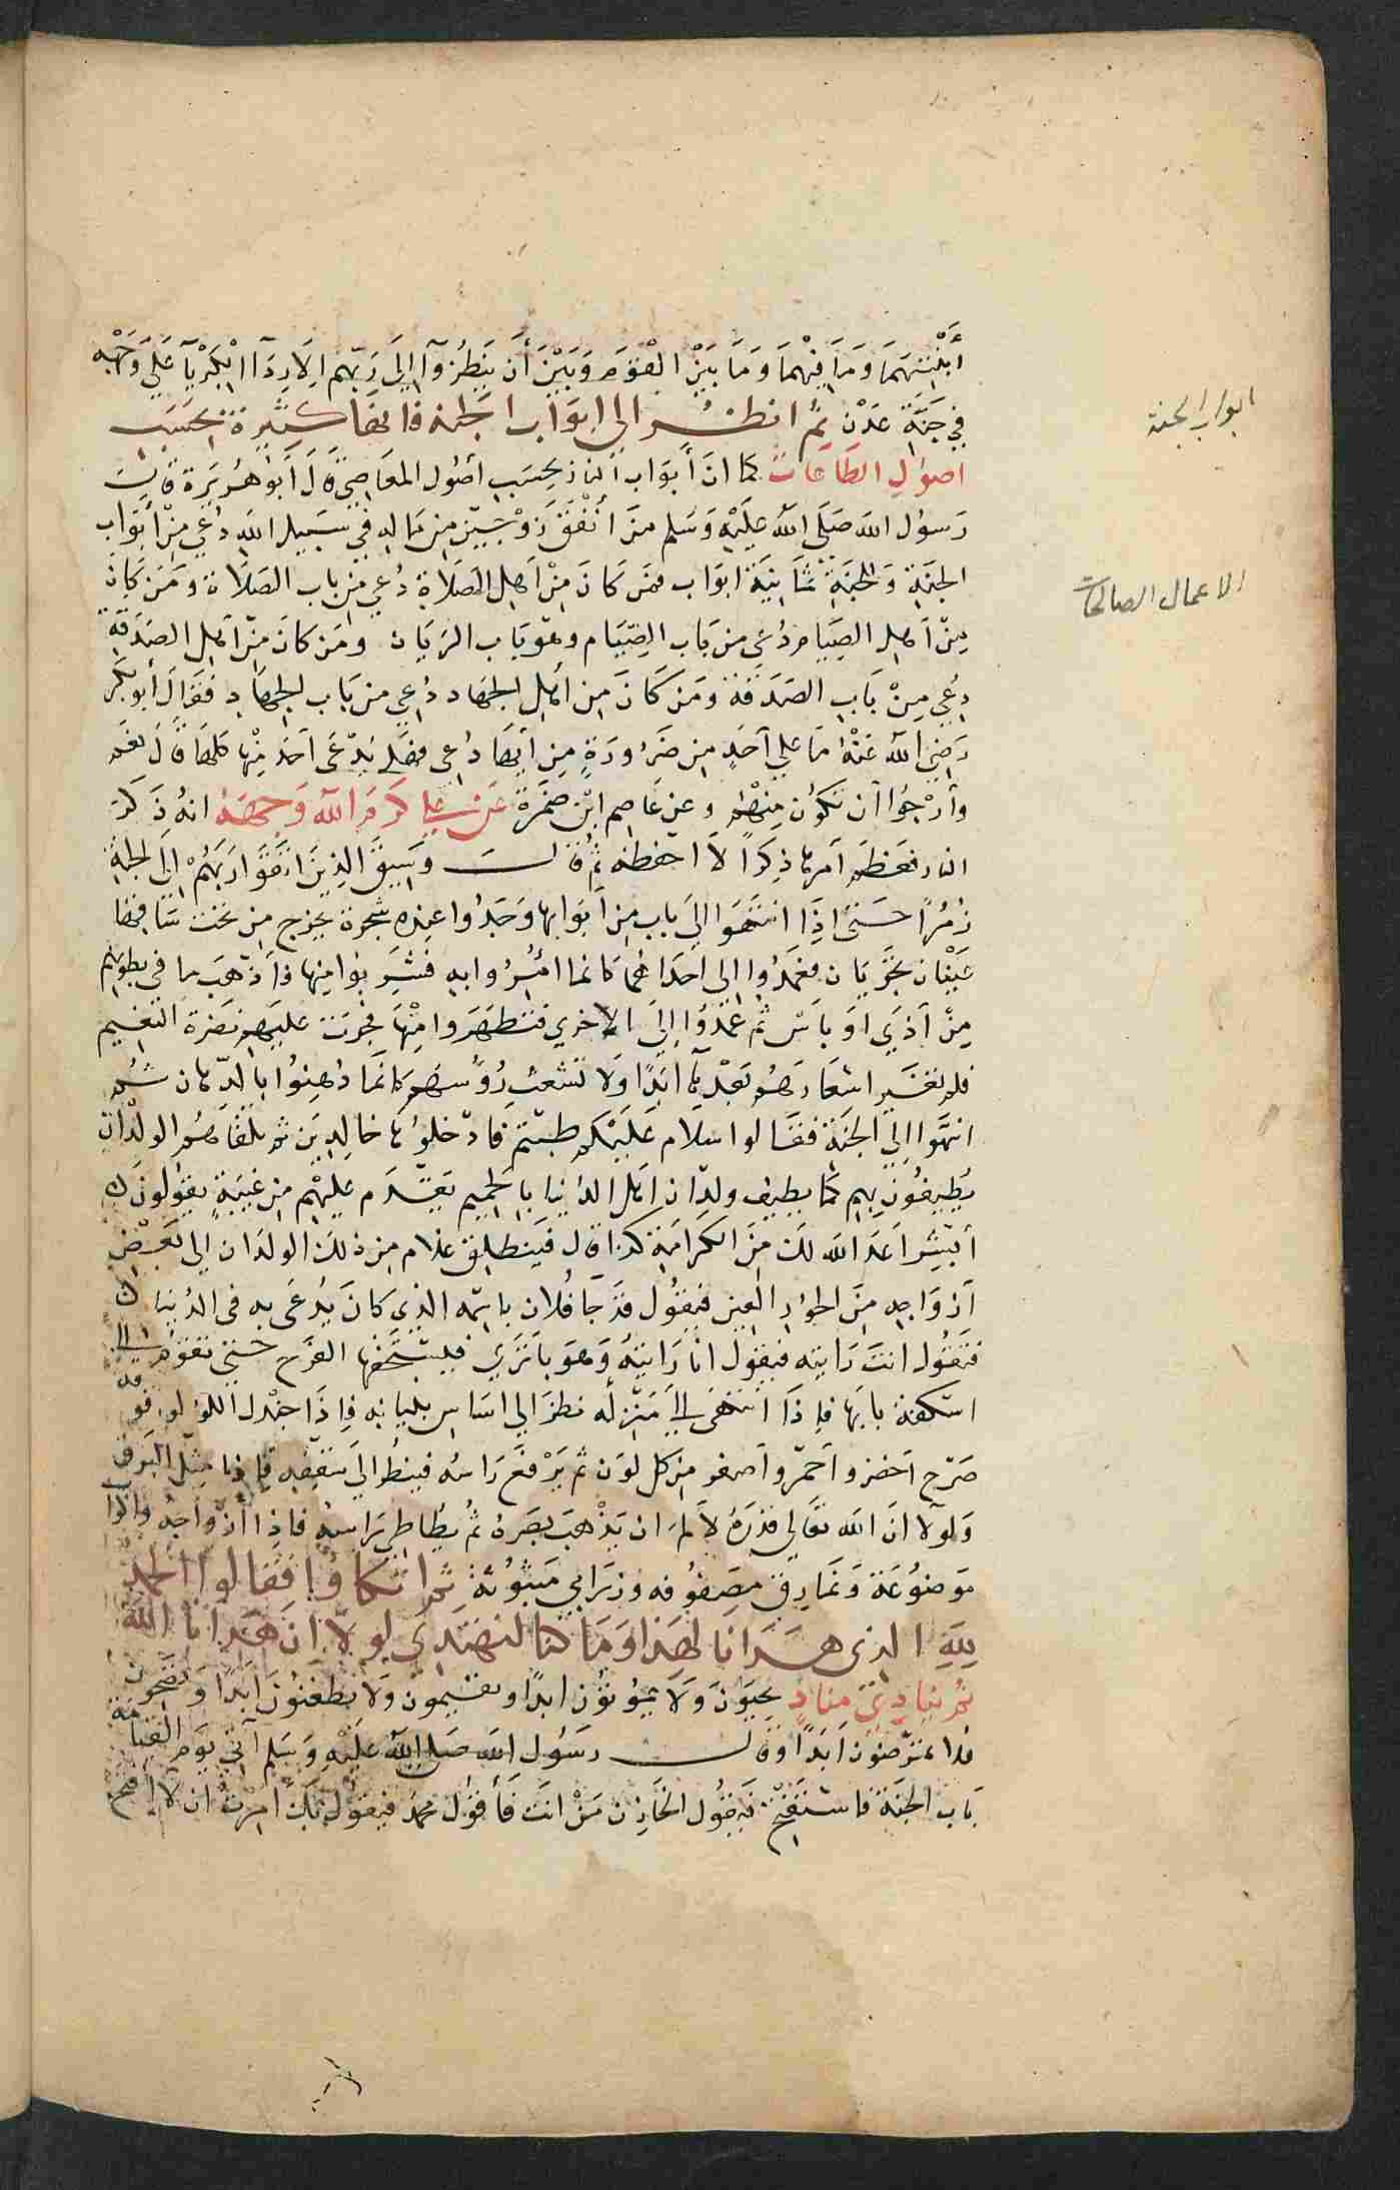 أَبْنِيَتُهُمَا وَمَا فِيْهِمَا وَمَا بَيْنَ الْقَوْمِ وَبَيْنَ أَن يَنظُرُوآ إِلَى رَبّهِم إِلَا رِدَآ الْكِبْرِيَآ عَلَى وَجْهِه
فِي جَنَّةِ عَدْنٍ ثمَّ انظر الى ابوَاب الجنة فانها كثيرة بحَسَب
ابواب الجنة
اصوْلِ الطَاعَات كما انَ أبوَاب النار بحِسَب أصُول المعَاصِي قَالَ أَبوْ هُرَيرَة قَالَ
رَسوُل الله صَلَى الله عليْه وَسَلم منَ أنْفَقَ زَوْجَيْن مِن مَالِه في سَبيل الله دُعِي مِنْ أبوَاب
الجنَة وَللجنَةِ ثمَانِيَة ابوَاب فمَن كَانَ مِنْ أهِل الصَلَاةِ دُعِي مِن باب الصَلَاة ومَن كَانَ
الاعمال الصالحات
مِنْ أهِل الصِيَام دُعِي من بَاب الصِيَام وهوَ بَاب الرَيَان ومَن كانَ مِنْ أهْل الصَدَقَةِ
دُعِي مِنْ بَابِ الصَدَقَة ومَن كَانَ مِن أهْل الجهَاد دُعِي من بَاب الجهَادِ فقَالَ أبو بَكر
رَضِيَ الله عَنْهُ مَا عَلي أحَدٍ مِن ضَرُورَةٍ مِن أيهَا دُعِي فهَل يُدْعَى أحَد مِنْها كلهَا قَالَ نعَم
وأرْجُوا أن تكوُن مِنهُم وعن عَاصِم ابْن ضمرَة عَن علي كرمَ الله وَجهَهُ انهُ ذَكرَ
النار فعَظمَ أمرَها ذِكرًا لا أحفظه ثم قال وَسِيقَ الذِينَ اتقَوا رَبَهُمْ إلَى الجنَةِ
زُمُرًا حَتىَ إذَا انتَهَوا إلَى بَاب مِن أبوَابها وَجَدُوا عِندَه شجَرة يخرج مِن تحت سَاقِهَا
عَيْنَان تجْرِيَان فعَمَدُوا الى احَدَاهمَا كَانما أمُرُوا به فشَرِبوا مِنها فأذهَبَت ما في بطونِهِم
مِنْ أذيً أوْ بَاس ثم عَمَدُوا إلَى الاخرى فتطهَرَوا مِنْهَا فجَرَت عليَهِم نَضرَة النَعيم
فلم تغيَر اشعَارَهُم بَعْدَهَا أبَدًا وَلا تشْعَث رُؤُسهُم كانمَا دُهِنُوا بالدِهَان ثم
انتَهَوا إلَى الجنَة فقالوا سَلام عَلَيْكم طِبتُم فادْخلوُها خَالِدِينَ ثم تلقَاهُم الوِلْدَان
يُطِيفُونَ بِهِم كما يطِيف وِلدَان أهل الدُنْيا بالحمِيم يَقْدَم عليْهِم مِن غيبَةٍ يقوُلونَ لهُ
أبشِر أعَدَ الله لك مِنَ الكَرامَةِ كذا قالَ فيَنطلِق غلام مِن ذلكَ الولدَان إلى بَعْض
أزوَاجِه مِنَ الحوُر العِين فيَقوُل قدْ جَا فُلان باسْمِه الذِي كانَ يُدعَى به في الدُنيَا
فتَقوُل انتَ رَايتَه فيَقوُل انَا رَايتهُ وَهوَ بأثرِي فيَستَخفهَا الفرَح حتىَ تقوُم إلى
اسكُفة بابَها فإذَا انتهَى إلىَ مَنزِله نظرَ إلى أسَاس بُنيَانِه فإذَا جندل اللؤلو فوقه
صَرْح أخضر وأحمَر وأصفر مِن كل لوْن ثم يَرْفع رَاسَه فينظر إلَى سَقفِه فإذا مِثل البَرق
وَلولا انَ الله تعَالى قدرَهُ لألمَ ان يَذهَب بصَرَهُ ثمَ يطَاطِي رَاسَه فإذَا أزْوَاجُه وأكوَاب
موْضوُعَة وَنمَارِق مصفوُفه وزَرَابي مَبثوُثة ثم اتكاوُا فقالوا الحمد
لِلَهِ الذي هدَانا لهذا وَمَا كنا لنهتدي لولا ان هَدَانا الله
ثم يُنادِي منادٍ تحيَوْن وَلا تموُتوُن ابدًا وتقيمون وَلا تظعَنوُن أبَدًا وَتصحون
فلا تمرَضوُن أبَدًا وَقَال رَسُول الله صَلى الله عَليْهِ وَسَلم آتي يَوْم القيامَة
بَاب الجنَة فاستَفتح فيَقوُل الخَازِن مَنْ انتَ فأقوُل محمدٌ فيقوُل بكَ أمِرْتُ أن لا أفتح